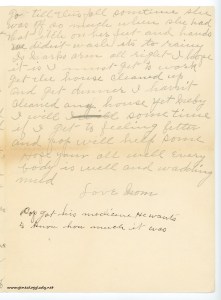 so tell Elsie all sometime she
well of so much when she had
that little on her feet and hands
we didnt wash its to rainy
is Marks arm all right I hope
it is I must get to work
get the house cleaned up
and get dinner I havent
cleaned any house yet Maby
I will sometime
if I get to feeling better
and pop will help some
hope your all well every
body is well and wadding
mud
Love Mom
Roy got his medicine He wants
to know how much it was
www.genealogylady.net